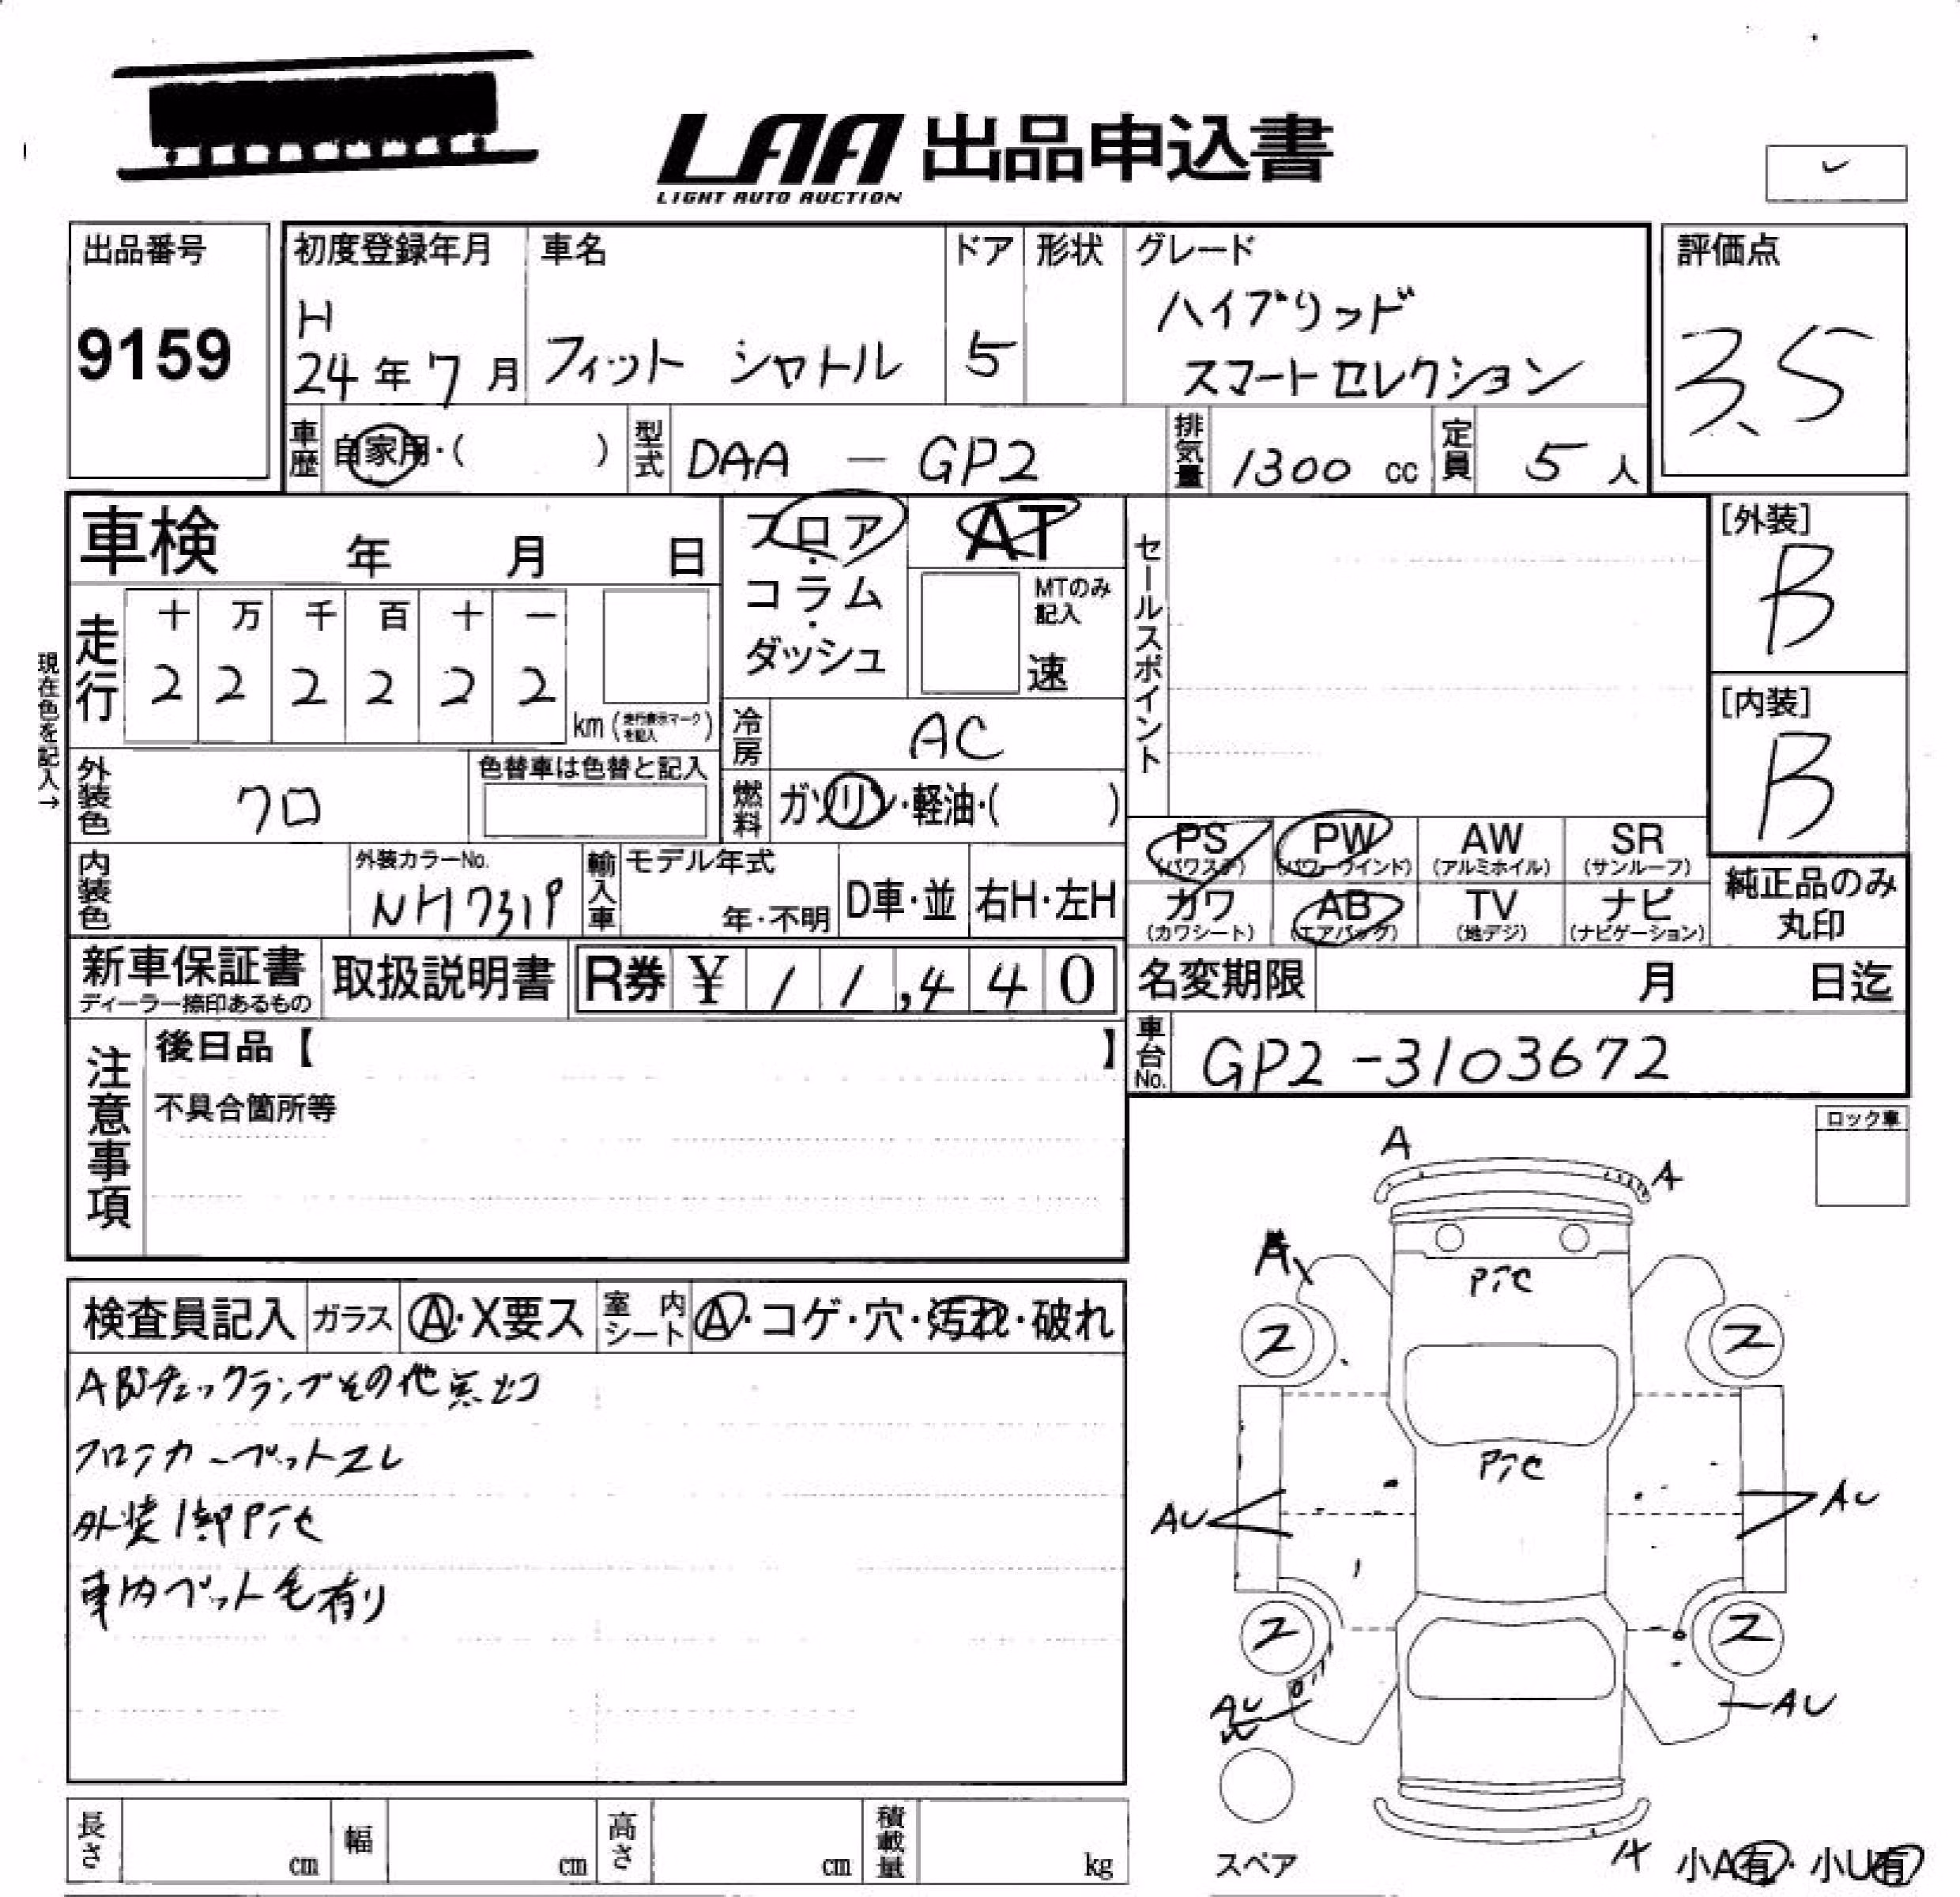 LAA 出品申込書
LIGHT AUTO AUCTION
出品番号
9159
初度登録年月
H
24年7月
車名
フィット シャトル
ドア
5
形状
グレード
ハイブリッド
スマートセレクション
評価点
3.5
車歴
自家用・( )
型式
DAA - GP2
排気量
1300 cc
定員
5 人
車検 年 月 日
フロア
・
コラム
・
ダッシュ
AT
MTのみ
記入
速
セールスポイント
[外装]
B
[内装]
B
現在色を記入→
走行
十 万 千 百 十 一
2 2 2 2 2 2
km (走行表示マークを記入)
冷房
AC
外装色
クロ
色替車は色替と記入
燃料
ガソリン・軽油・( )
PS
(パワステ)
PW
(パワーウインド)
AW
(アルミホイル)
SR
(サンルーフ)
カワ
(カワシート)
AB
(エアバッグ)
TV
(地デジ)
ナビ
(ナビゲーション)
純正品のみ
丸印
内装色
外装カラーNo.
NH731P
輸入車
モデル年式
年・不明
D車・並
右H・左H
新車保証書
ディーラー捺印あるもの
取扱説明書
R券 ¥ 11,440
名変期限 月 日迄
車台No.
GP2-3103672
注意事項
後日品【 】
不具合箇所等
ロック車
検査員記入
ガラス
A・X要ス
室内シート
A・コゲ・穴・汚れ・破れ
ABSチェックランプその他点出コ
フロアカーペットスレ
外装1部Pﾃｾ
車内ペット毛有り
A
A
A
Pﾃｾ
2
2
Pﾃｾ
AU
AU
2
2
AU
W
AU
スペア
A
小A有・小U有
長さ cm
幅 cm
高さ cm
積載量 kg